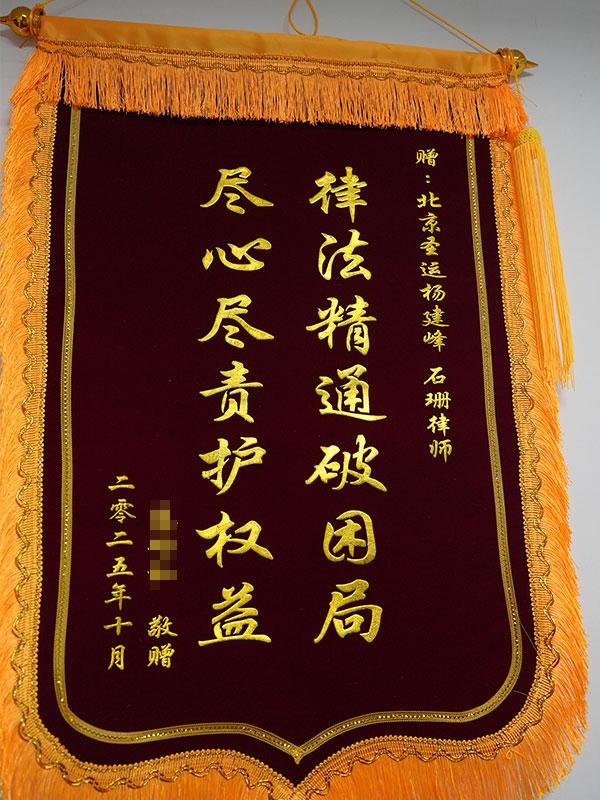 赠：北京圣运杨建峰 石珊律师
律法精通破困局
尽心尽责护权益
敬赠
二零二五年十月